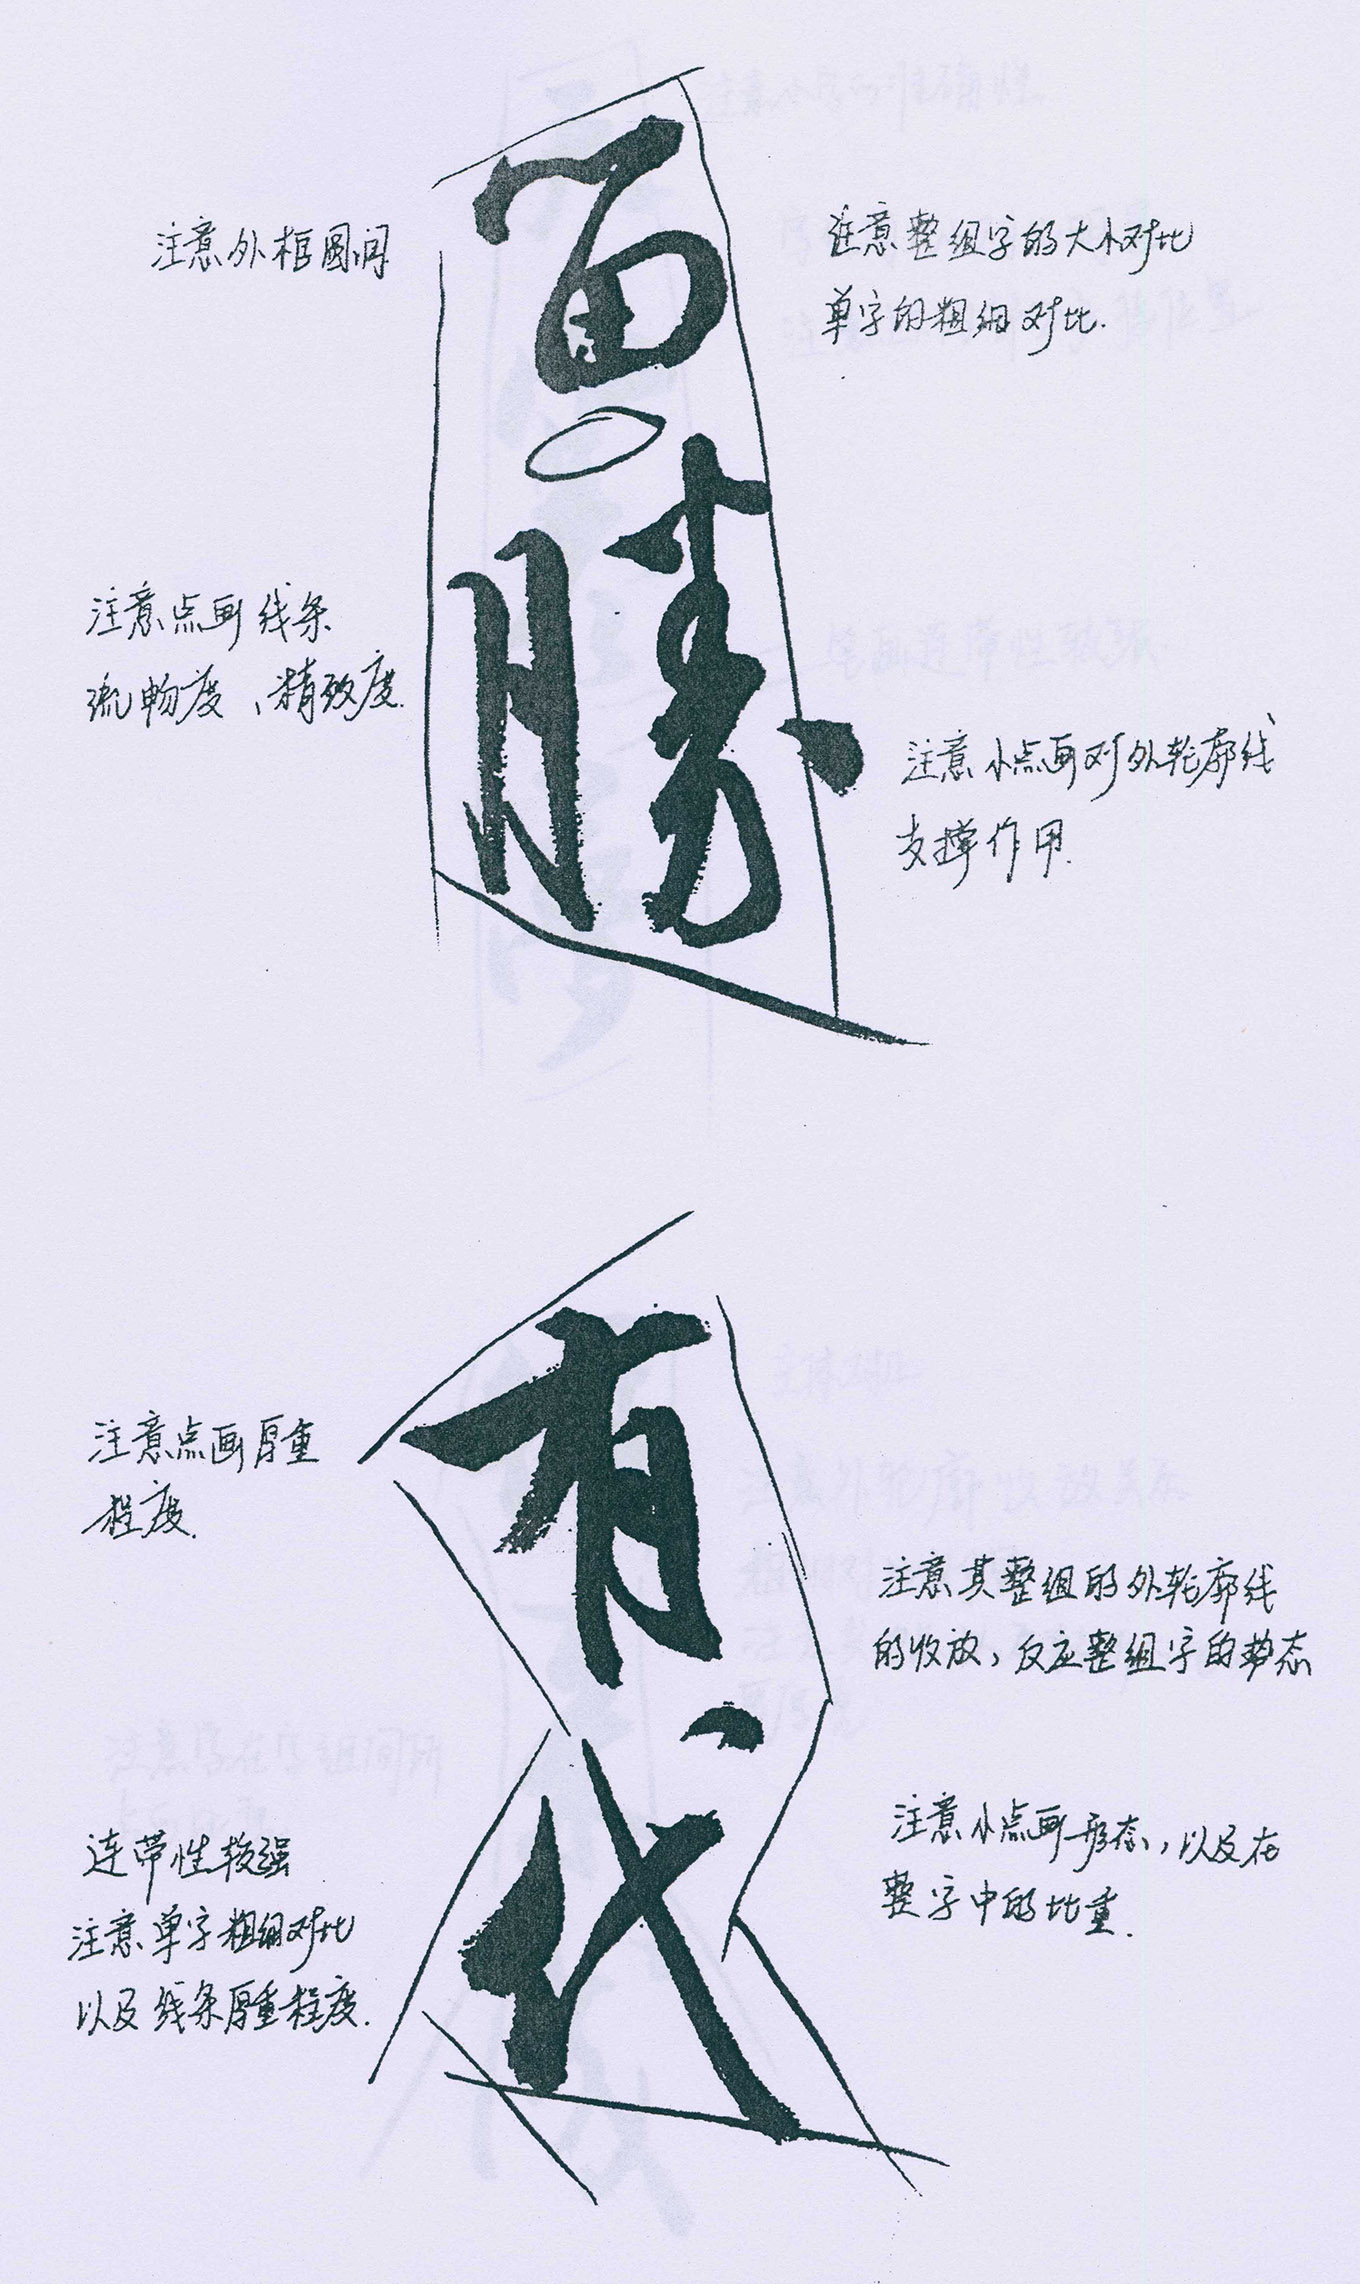 注意外框圆润
留
注意整组字的大小对比
单字的粗细对比.
注意点画线条
流畅度、精致度.
勝
注意小点画对外轮廓线
支撑作用.
有
注意点画厚重
程度.
注意其整组的外轮廓线
的收放，反应整组字的势态
代
注意小点画形态，以及在
整字中的比重.
连带性较强
注意单字粗细对比
以及线条厚重程度.